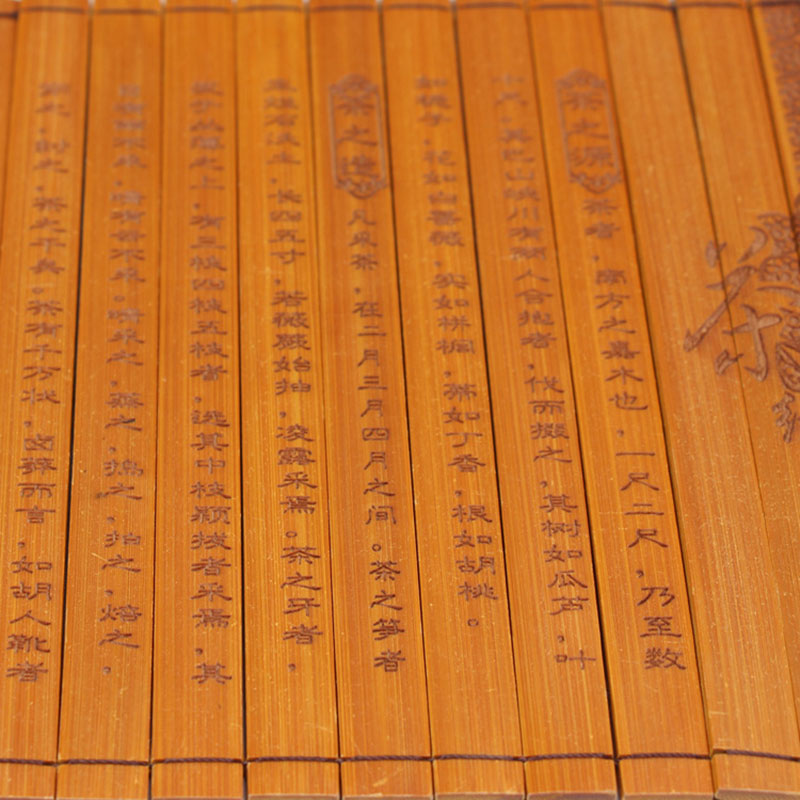 茶之源 茶者，南方之嘉木也，一尺二尺，乃至数
十尺，其巴山峡川有两人合抱者，伐而掇之，其树如瓜芦，叶
如栀子，花如白蔷薇，实如栟榈，蒂如丁香，根如胡桃。
茶之造 凡采茶，在二月三月四月之间。茶之笋者
生烂石沃土，长四五寸，若薇蕨始抽，凌露采焉。茶之牙者，
发于丛薄之上，有三枝四枝五枝者，选其中枝颖拔者采焉，其
日有雨不采，晴有云不采。晴采之，蒸之，捣之，拍之，焙之，
穿之，封之，茶之干矣。茶有千万状，卤莽而言，如胡人靴者